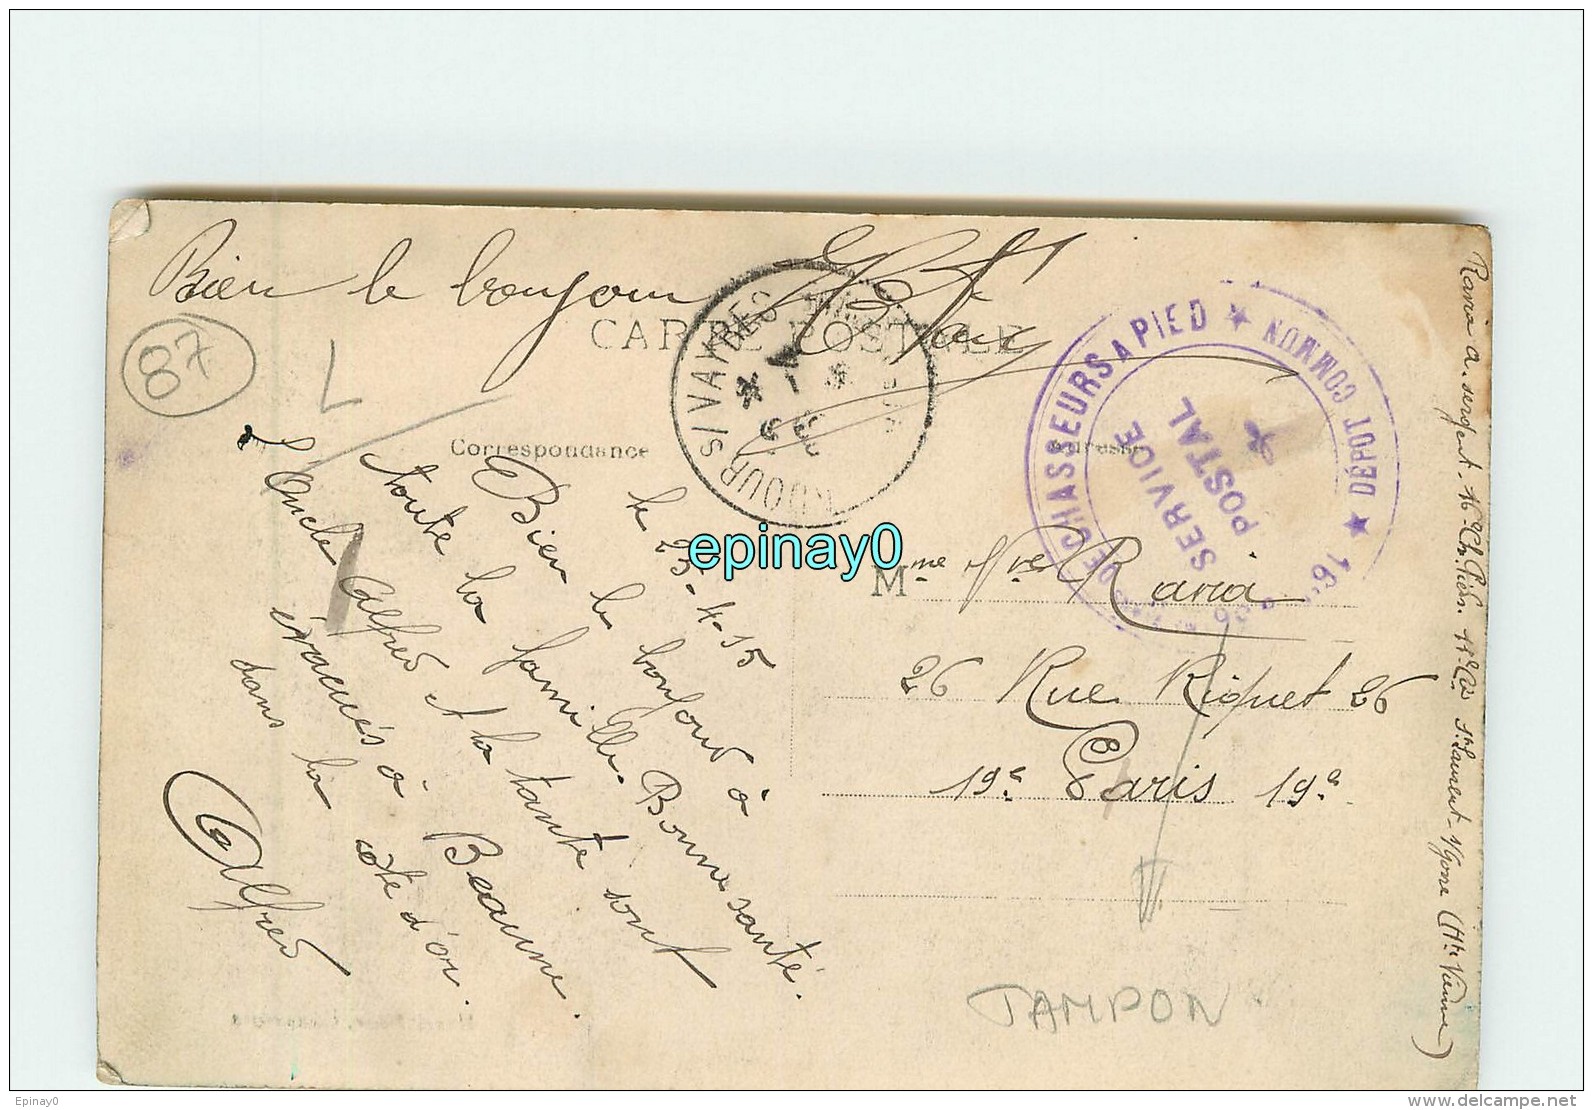 Bien le bonjour
CARTE POSTALE
87
Correspondance
Adresse
le 25-4-15
Bien le bonjour à
toute la famille. Bonne santé.
L'oncle Alfred et la tante sont
évacués à Beaune.
dans la côte d'or.
Alfred
Mme Vve Raria
26 Rue Riquet 26
19e Paris 19e
DE CHASSEURS A PIED ★ DÉPOT COMMUN ★ 16
SERVICE
POSTAL
Raria a. sergent. 16e Ch. Pieds. 11e Cie St Laurent-s/Gorre (Hte Vienne)
TAMPON
epinay0
Epinay0
www.delcampe.net